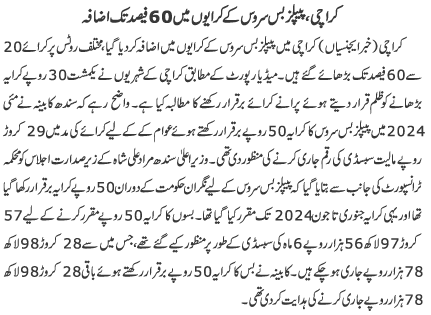 کراچی، پیپلز بس سروس کے کرایوں میں 60 فیصد تک اضافہ
کراچی (خبر ایجنسیاں) کراچی میں پیپلز بس سروس کے کرایوں میں اضافہ کر دیا گیا، مختلف روٹس پر کرائے 20
سے 60 فیصد تک بڑھائے گئے ہیں۔ میڈیا رپورٹ کے مطابق کراچی کے شہریوں نے یکمشت 30 روپے کرایہ
بڑھانے کو ظلم قرار دیتے ہوئے پرانے کرائے برقرار رکھنے کا مطالبہ کیا ہے۔ واضح رہے کہ سندھ کابینہ نے مئی
2024 میں پیپلز بس سروس کا کرایہ 50 روپے برقرار رکھتے ہوئے عوام کے کے لیے کرائے کی مد میں 29 کروڑ
روپے مالیت سبسڈی کی رقم جاری کرنے کی منظور دی تھی۔ وزیر اعلیٰ سندھ مراد علی شاہ کے زیر صدارت اجلاس کو محکمہ
ٹرانسپورٹ کی جانب سے بتایا گیا کہ پیپلز بس سروس کے لیے نگران حکومت کے دوران 50 روپے کرایہ برقرار رکھا گیا
تھا اور یہی کرایہ جنوری تا جون 2024 تک مقرر کیا گیا تھا۔ بسوں کا کرایہ 50 روپے مقرر کرنے کے لیے 57
کروڑ 97 لاکھ 56 ہزار روپے 6 ماہ کی سبسڈی کے طور پر منظور کیے گئے تھے، جس میں سے 28 کروڑ 98 لاکھ
78 ہزار روپے جاری ہو چکے ہیں۔ کابینہ نے بس کا کرایہ 50 روپے برقرار رکھتے ہوئے باقی 28 کروڑ 98 لاکھ
78 ہزار روپے جاری کرنے کی ہدایت کر دی تھی۔